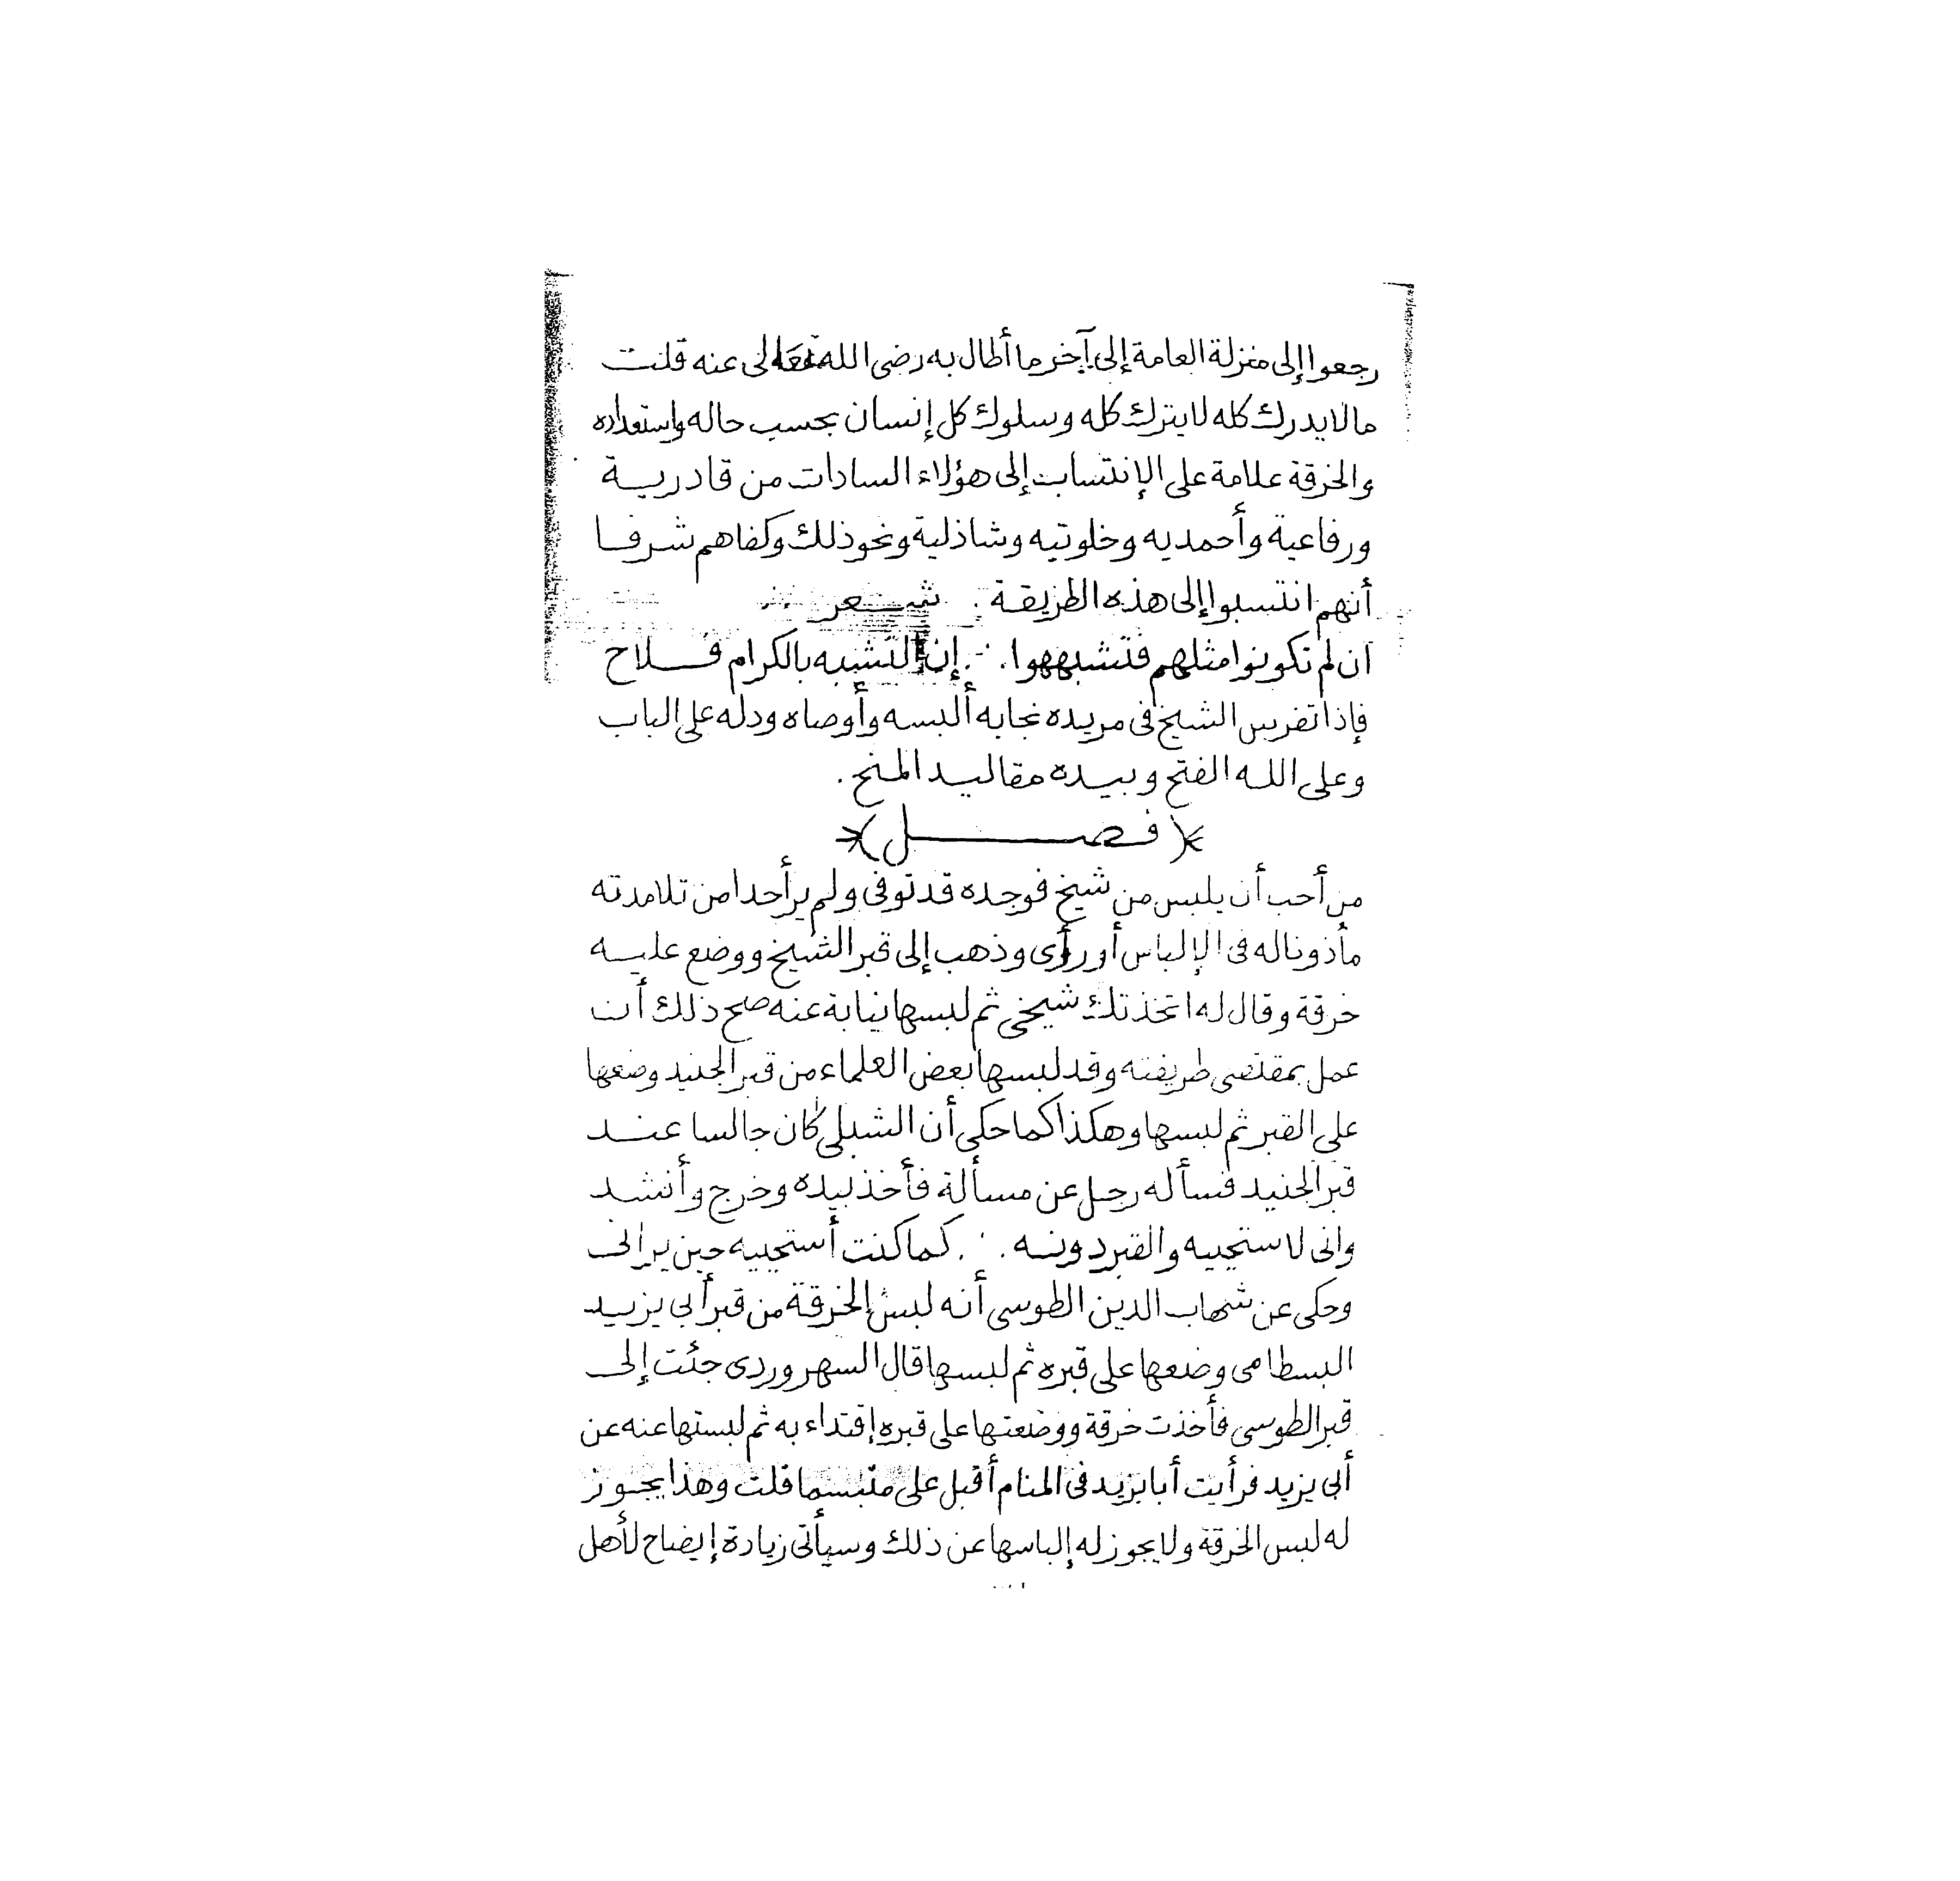 رجعوا إلى منزلة العامة إلى آخر ما أطال به رضى الله تعالى عنه قلت
مالا يدرك كله لا يترك كله وسلوك كل إنسان بحسب حاله واستعداده
والخرقة علامة على الإنتساب إلى هؤلاء السادات من قادرية
ورفاعية وأحمديه وخلوتيه وشاذلية ونحو ذلك وكفاهم شرفا
أنهم انتسبوا إلى هذه الطريقة . شعر
ان لم تكونوا مثلهم فتشبهوا . ˙ . إن التشبه بالكرام فلاح
فإذا تفرس الشيخ فى مريده نجابه ألبسه وأوصاه ودله على الباب
وعلى الله الفتح وبيده مقاليد المنح .
( فصل )
من أحب أن يلبس من شيخ فوجده قد توفى ولم ير أحدا من تلامدته
مأذونا له فى الإلباس أو رأى وذهب إلى قبر الشيخ ووضع عليه
خرقة وقال له اتخذتك شيخى ثم لبسها نيابة عنه صح ذلك أن
عمل بمقتضى طريقته وقد لبسها بعض العلماء من قبر الجنيد وضعها
على القبر ثم لبسها وهكذا كما حكى أن الشبلى كان جالسا عند
قبر الجنيد فسأله رجل عن مسألة فأخذ بيده وخرج وأنشد
وانى لاستحييه والقبر دونه . ˙ . كما كنت أستحييه حين يرانى
وحكى عن شهاب الدين الطوسى أنه لبس الخرقة من قبر أبى يزيد
البسطامى وضعها على قبره ثم لبسها قال السهروردى جئت إلى
قبر الطوسى فأخذت خرقة ووضعتها على قبره إقتداء به ثم لبستها عنه عن
أبى يزيد فرأيت أبا يزيد فى المنام أقبل على متبسما قلت وهذا يجوز
له لبس الخرقة ولا يجوز له إلباسها عن ذلك وسيأتى زيادة إيضاح لأهل